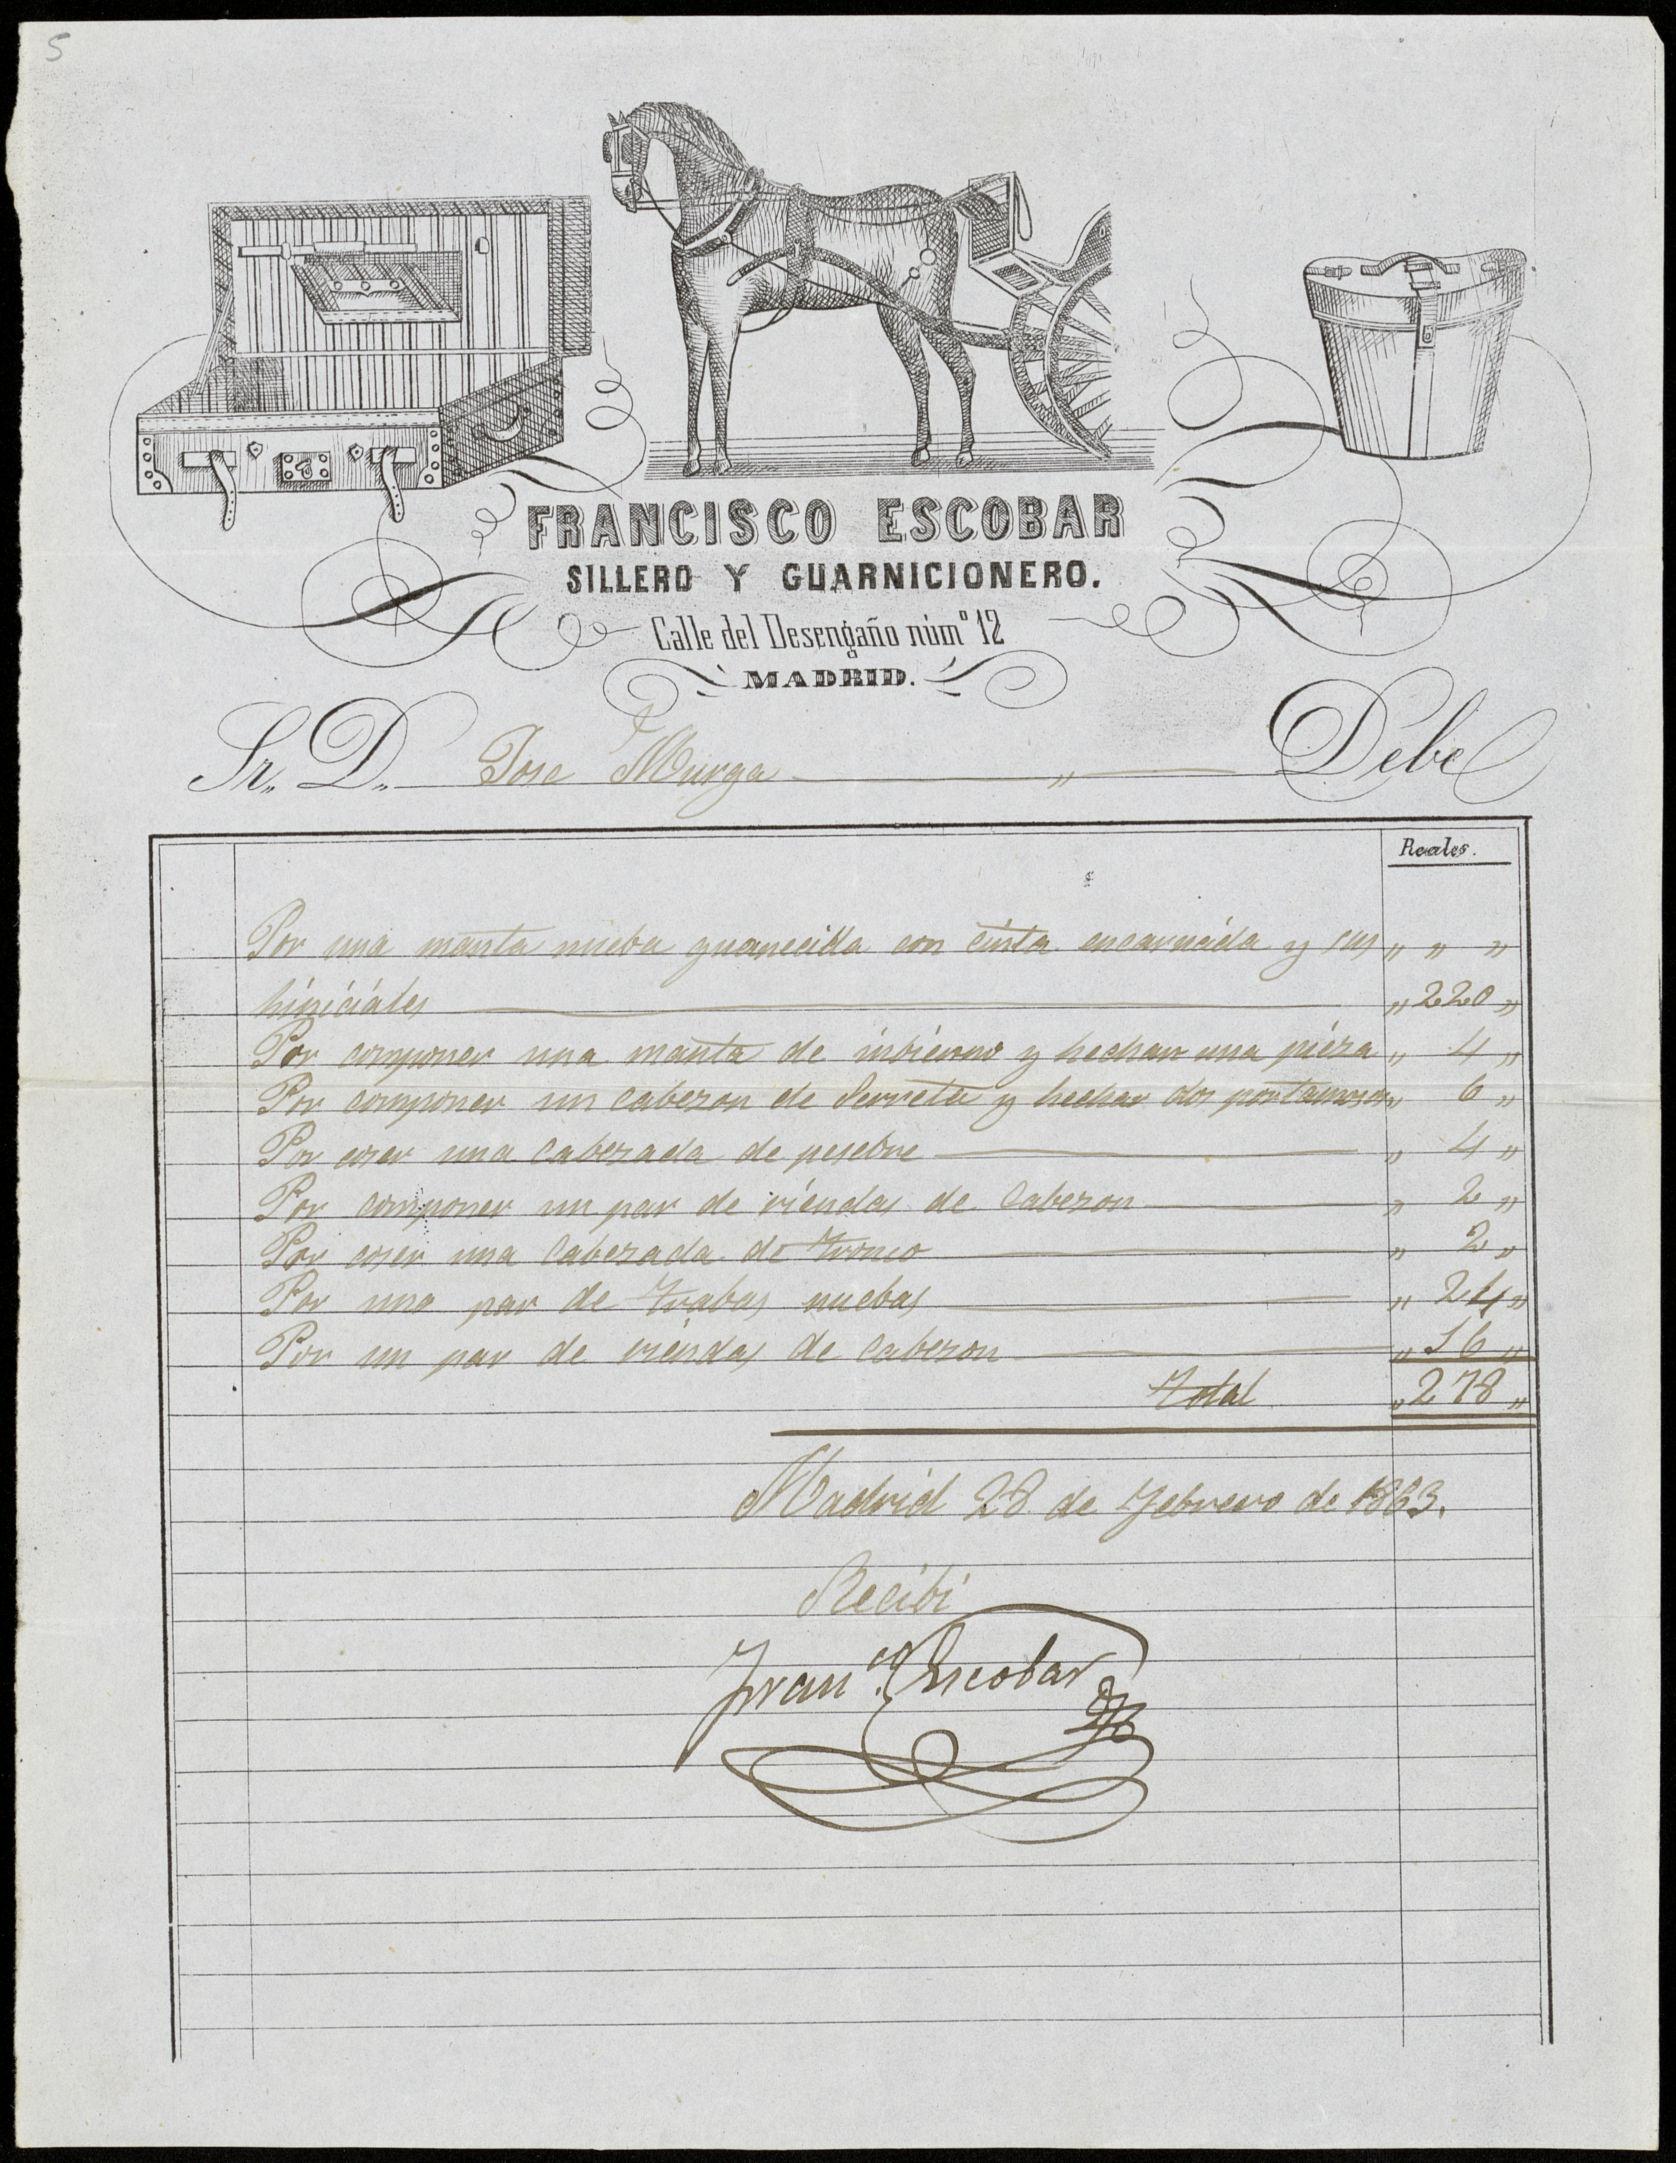 5
FRANCISCO ESCOBAR
SILLERO Y GUARNICIONERO.
Calle del Desengaño númº 12
MADRID.
Sr. D. Jose Murga " Debe
Reales.
Por una manta nueba guarnecida con cinta encarnada y sus " " "
hiniciales " 220 "
Por componer una manta de imbierno y hechar una pieza " 4 "
Por componer un cabezon de Serreta y hechar dos portamozos " 6 "
Por coser una cabezada de pesebre " 4 "
Por componer un par de riendas de Cabezon " 2 "
Por coser una Cabezada de tronco " 2 "
Por uno par de trabas nuebas " 24 "
Por un par de riendas de cabezon " 16 "
Total " 278 "
Madrid 28 de Febrero de 1863.
Recibi
Franco. Escobar